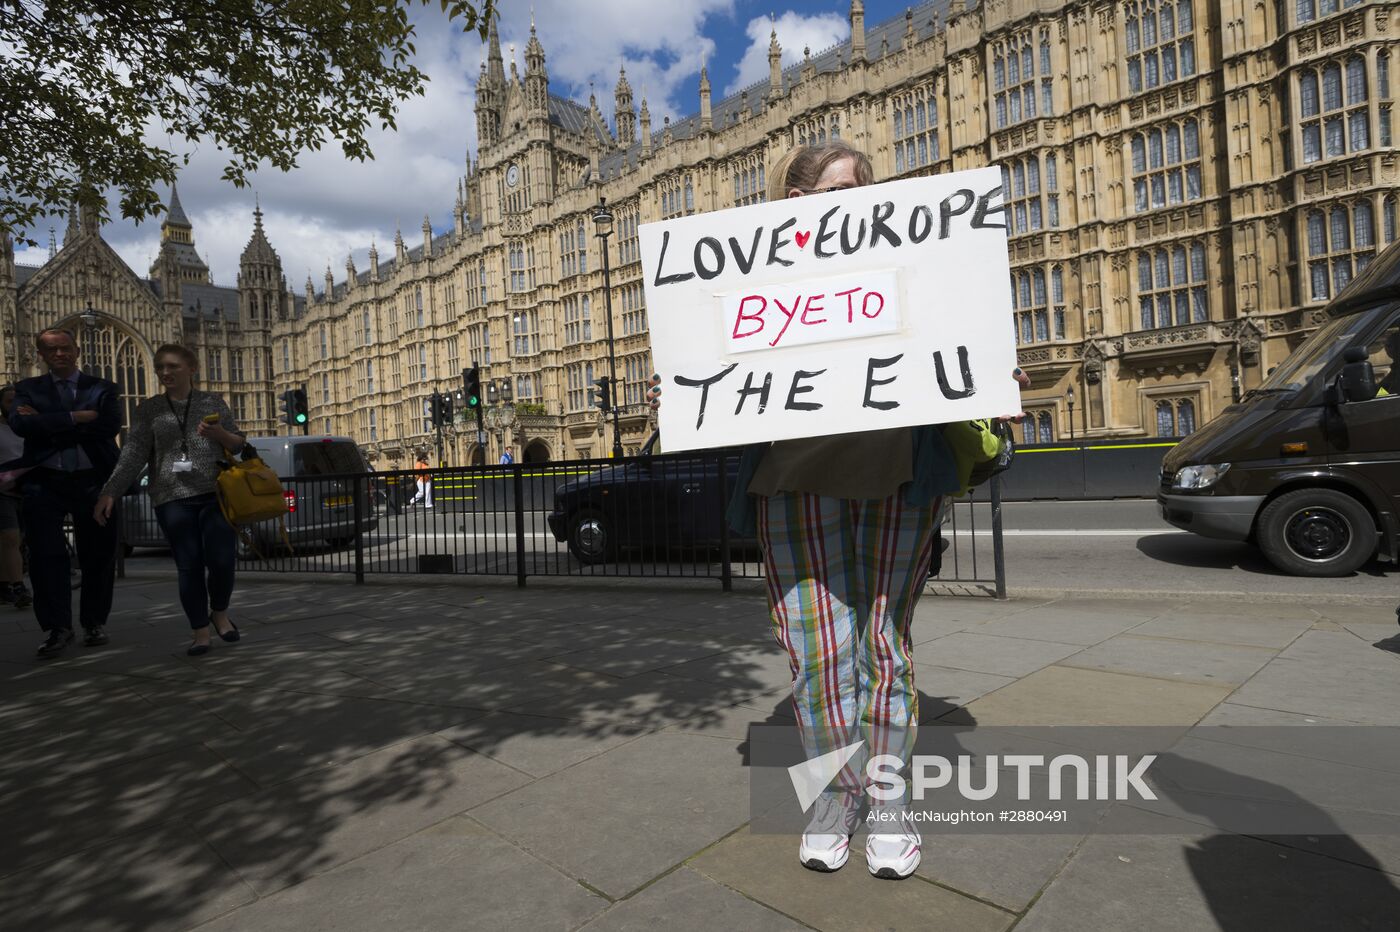 LOVE♥EUROPE
BYE TO
THE EU
SPUTNIK
Alex McNaughton #2880491